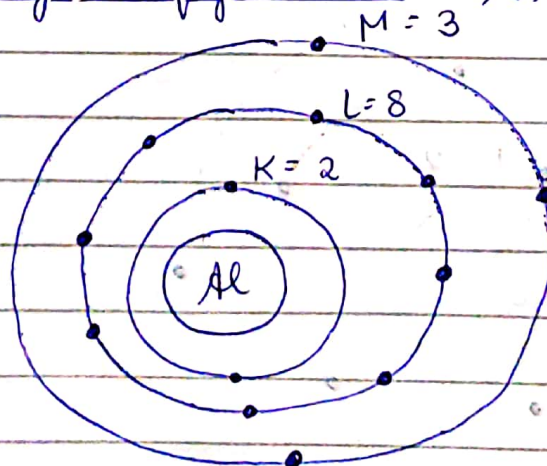 M = 3
L = 8
K = 2
Al